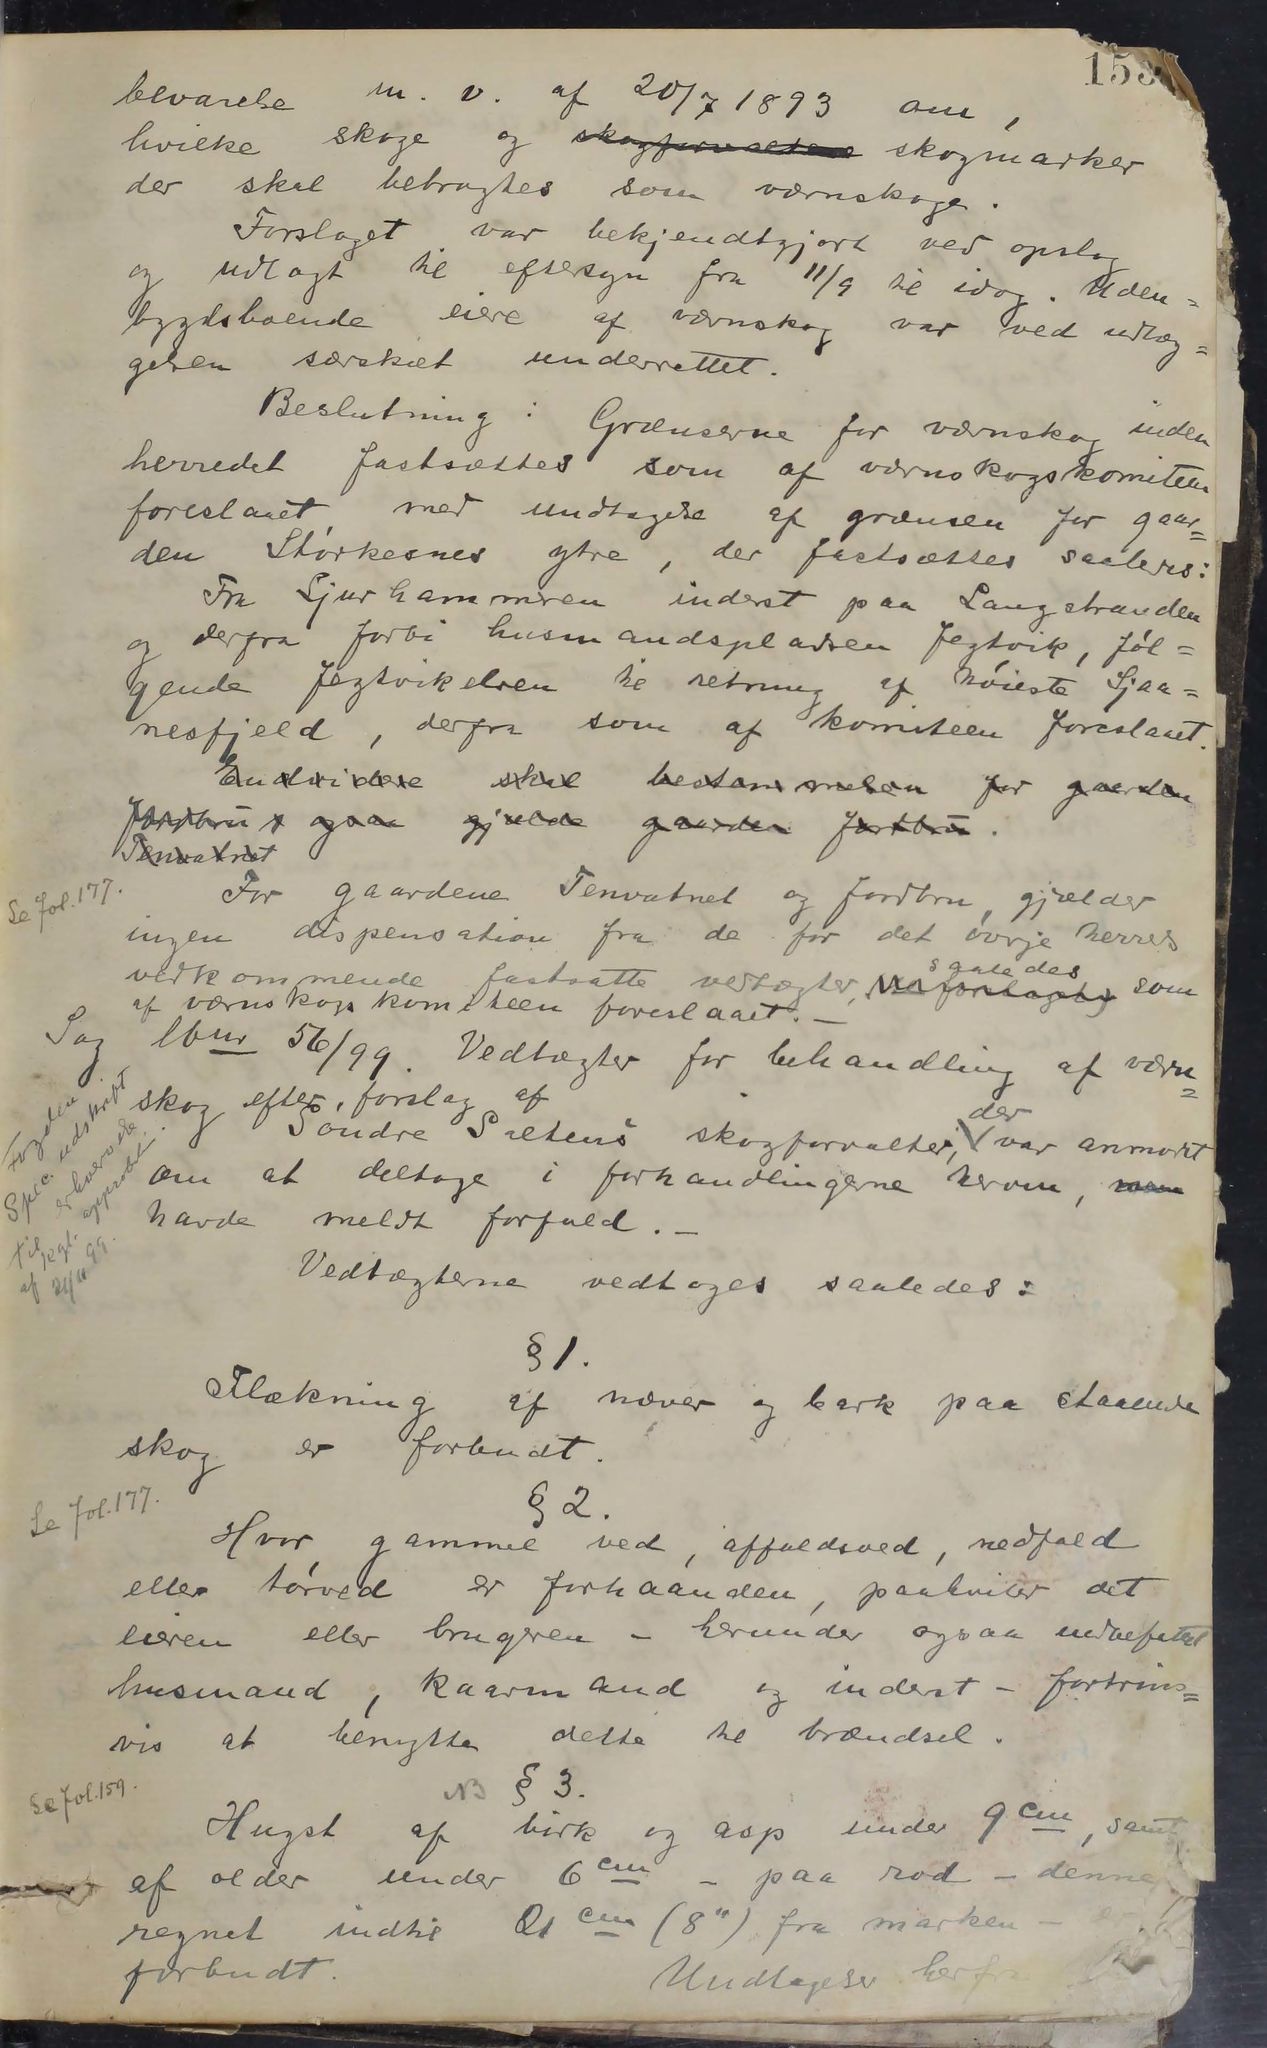 153
bevarelse m. v. af 20/7 1893 om,
hvilke skoge og skogforvaltere skogmarker
der skal betragtes som værnskoge.
Forslaget var bekjendtgjort ved opslag
og udlagt til eftersyn fra 11/9 til idag. Uden=
bygdsboende eiere af værnskog var ved udlæg=
gelsen særskilt underrettet.
Beslutning: Grænserne for værnskog inden
herredet fastsættes som af værnskogskomiteen
foreslaaet, med undtagelse af grænsen for gaar=
den Storkesnes ytre, der fastsættes saaledes:
Fra Sjurhammeren inderst paa Langstranden
og derfra forbi husmandspladsen Jegtvik, føl=
gende Jegtvikelven til retning af høieste Sjaa=
nesfjeld, derfra som af komiteen foreslaaet.
Endvidere skal bestemmelsen for gaarden
Jordbru x ogsaa gjælde gaarden Jordbru.
Tenvatnet
Se fol. 177.
For gaardene Tenvatnet og Jordbru, gjælder
ingen dispensation fra de for det øvrige herreds
vedkommende fastsatte vedtægter, saaledes som
af værnskogskomiteen foreslaaet. —
Sag lbnr 56/99. Vedtægter for behandling af værn=
skog efter forslag af
Søndre Saltens skogforvalter, der var anmodet
om at deltage i forhandlingerne herom, men
havde meldt forfald. —
Fogden
Spec. udskrift
erhvervede
til kgl. approbat.
af 24/11 99.
Vedtægterne vedtages saaledes:
§ 1.
Flækning af næver og bark paa staaende
skog er forbudt.
Se fol. 177.
§ 2.
Hvor gammel ved, affaldsved, nedfald
eller tørved er forhaanden, paahviler det
eieren eller brugeren – herunder ogsaa indbefattet
husmand, kaarmand og inderst – fortrins=
vis at benytte dette til brændsel.
Se fol. 159.
NB § 3.
Hugst af birk og asp under 9 cm, samt
af older under 6 cm – paa rod – denne
regnet indtil 21 cm (8") fra marken – er
forbudt. Undtagelse herfra